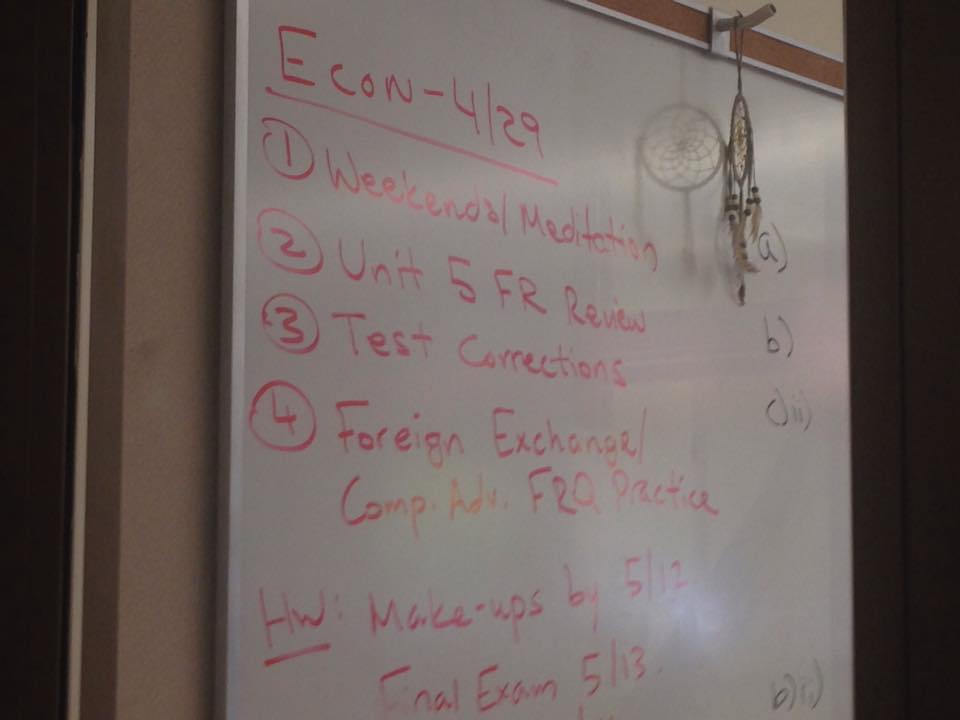 Econ-4/29
① Weekends/Meditation
② Unit 5 FR Review
③ Test Corrections
④ Foreign Exchange/
Comp. Adv. FRQ Practice
HW: Make-ups by 5/12
Final Exam 5/13
a)
b)
c)ii)
b)ii)